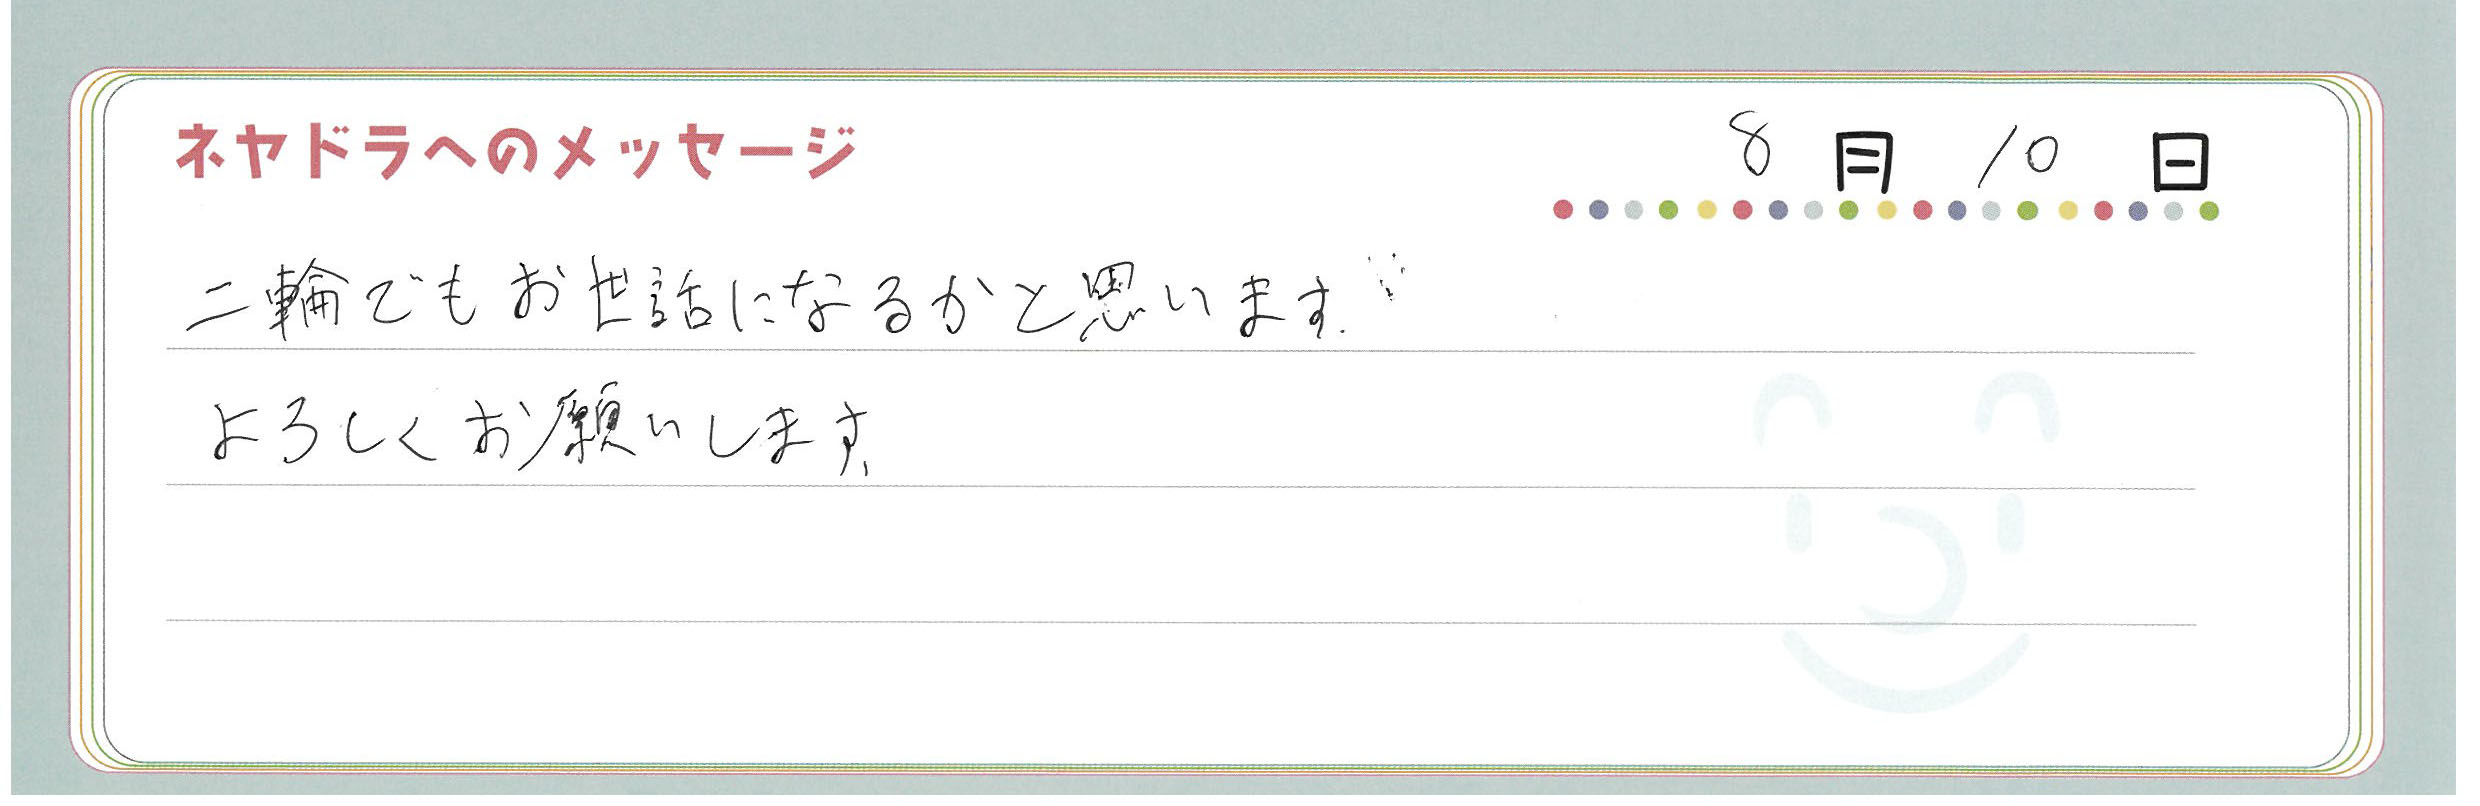 ネヤドラへのメッセージ
8月10日
二輪でもお世話になるかと思います.
よろしくお願いします.